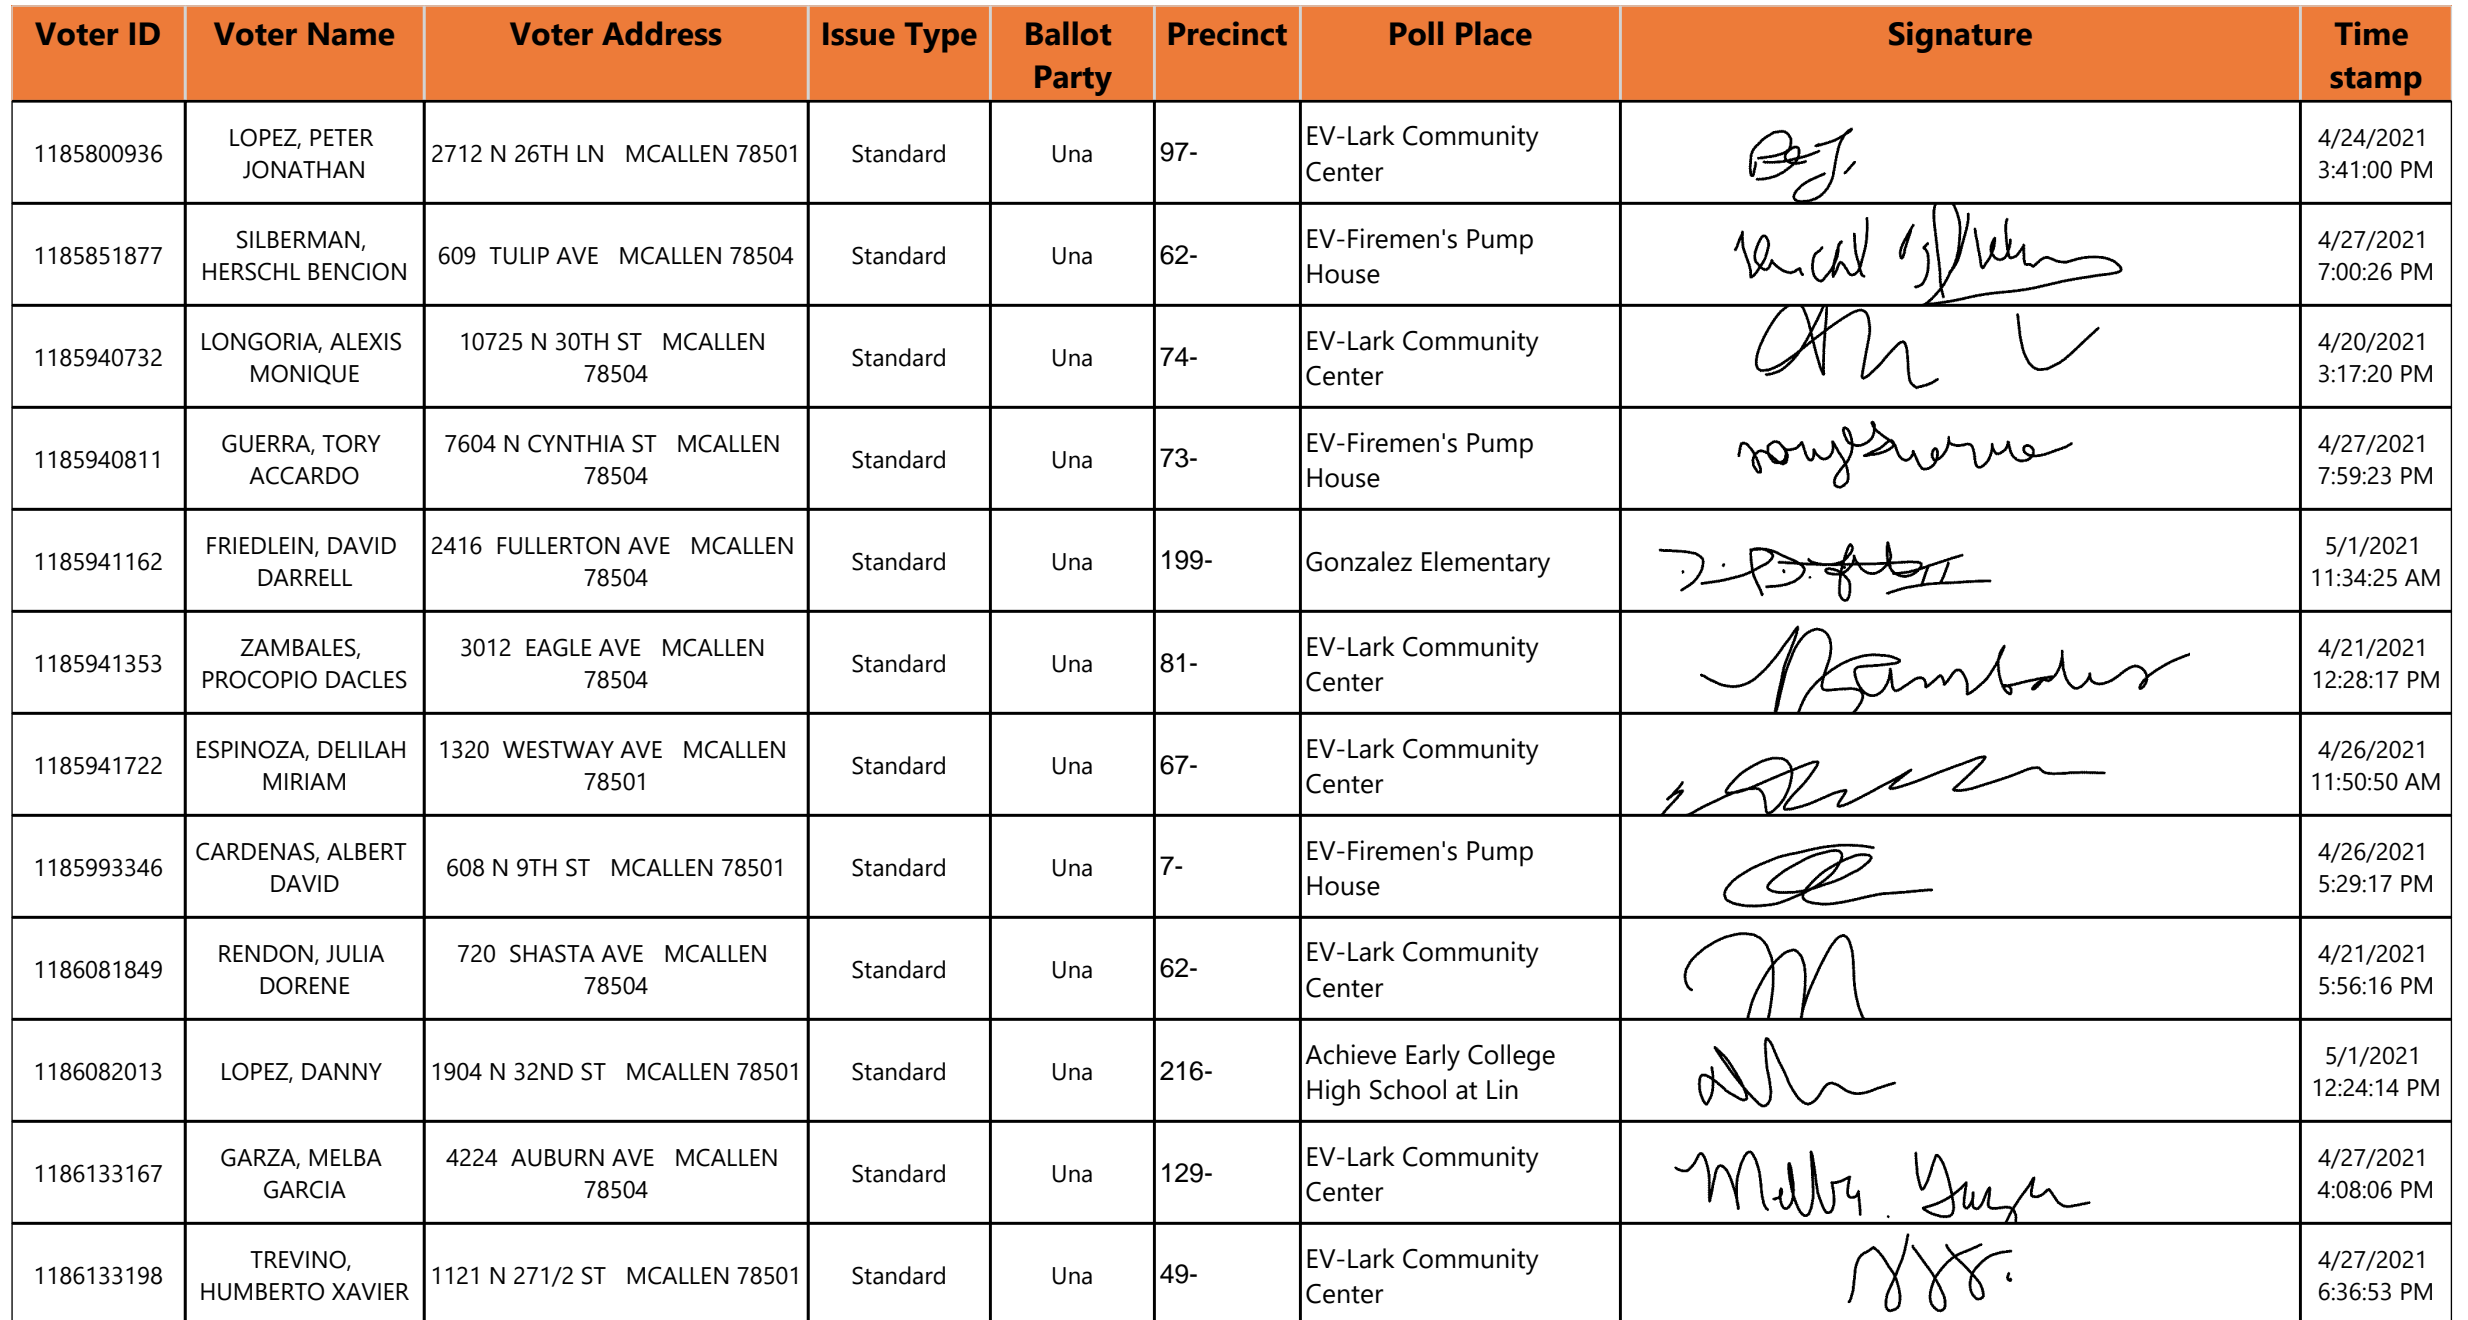 Voter ID Voter Name Voter Address Issue Type Ballot Party Precinct Poll Place Signature Time stamp
1185800936 LOPEZ, PETER JONATHAN 2712 N 26TH LN MCALLEN 78501 Standard Una 97- EV-Lark Community Center 4/24/2021 3:41:00 PM
1185851877 SILBERMAN, HERSCHL BENCION 609 TULIP AVE MCALLEN 78504 Standard Una 62- EV-Firemen's Pump House 4/27/2021 7:00:26 PM
1185940732 LONGORIA, ALEXIS MONIQUE 10725 N 30TH ST MCALLEN 78504 Standard Una 74- EV-Lark Community Center 4/20/2021 3:17:20 PM
1185940811 GUERRA, TORY ACCARDO 7604 N CYNTHIA ST MCALLEN 78504 Standard Una 73- EV-Firemen's Pump House 4/27/2021 7:59:23 PM
1185941162 FRIEDLEIN, DAVID DARRELL 2416 FULLERTON AVE MCALLEN 78504 Standard Una 199- Gonzalez Elementary 5/1/2021 11:34:25 AM
1185941353 ZAMBALES, PROCOPIO DACLES 3012 EAGLE AVE MCALLEN 78504 Standard Una 81- EV-Lark Community Center 4/21/2021 12:28:17 PM
1185941722 ESPINOZA, DELILAH MIRIAM 1320 WESTWAY AVE MCALLEN 78501 Standard Una 67- EV-Lark Community Center 4/26/2021 11:50:50 AM
1185993346 CARDENAS, ALBERT DAVID 608 N 9TH ST MCALLEN 78501 Standard Una 7- EV-Firemen's Pump House 4/26/2021 5:29:17 PM
1186081849 RENDON, JULIA DORENE 720 SHASTA AVE MCALLEN 78504 Standard Una 62- EV-Lark Community Center 4/21/2021 5:56:16 PM
1186082013 LOPEZ, DANNY 1904 N 32ND ST MCALLEN 78501 Standard Una 216- Achieve Early College High School at Lin 5/1/2021 12:24:14 PM
1186133167 GARZA, MELBA GARCIA 4224 AUBURN AVE MCALLEN 78504 Standard Una 129- EV-Lark Community Center 4/27/2021 4:08:06 PM
1186133198 TREVINO, HUMBERTO XAVIER 1121 N 271/2 ST MCALLEN 78501 Standard Una 49- EV-Lark Community Center 4/27/2021 6:36:53 PM